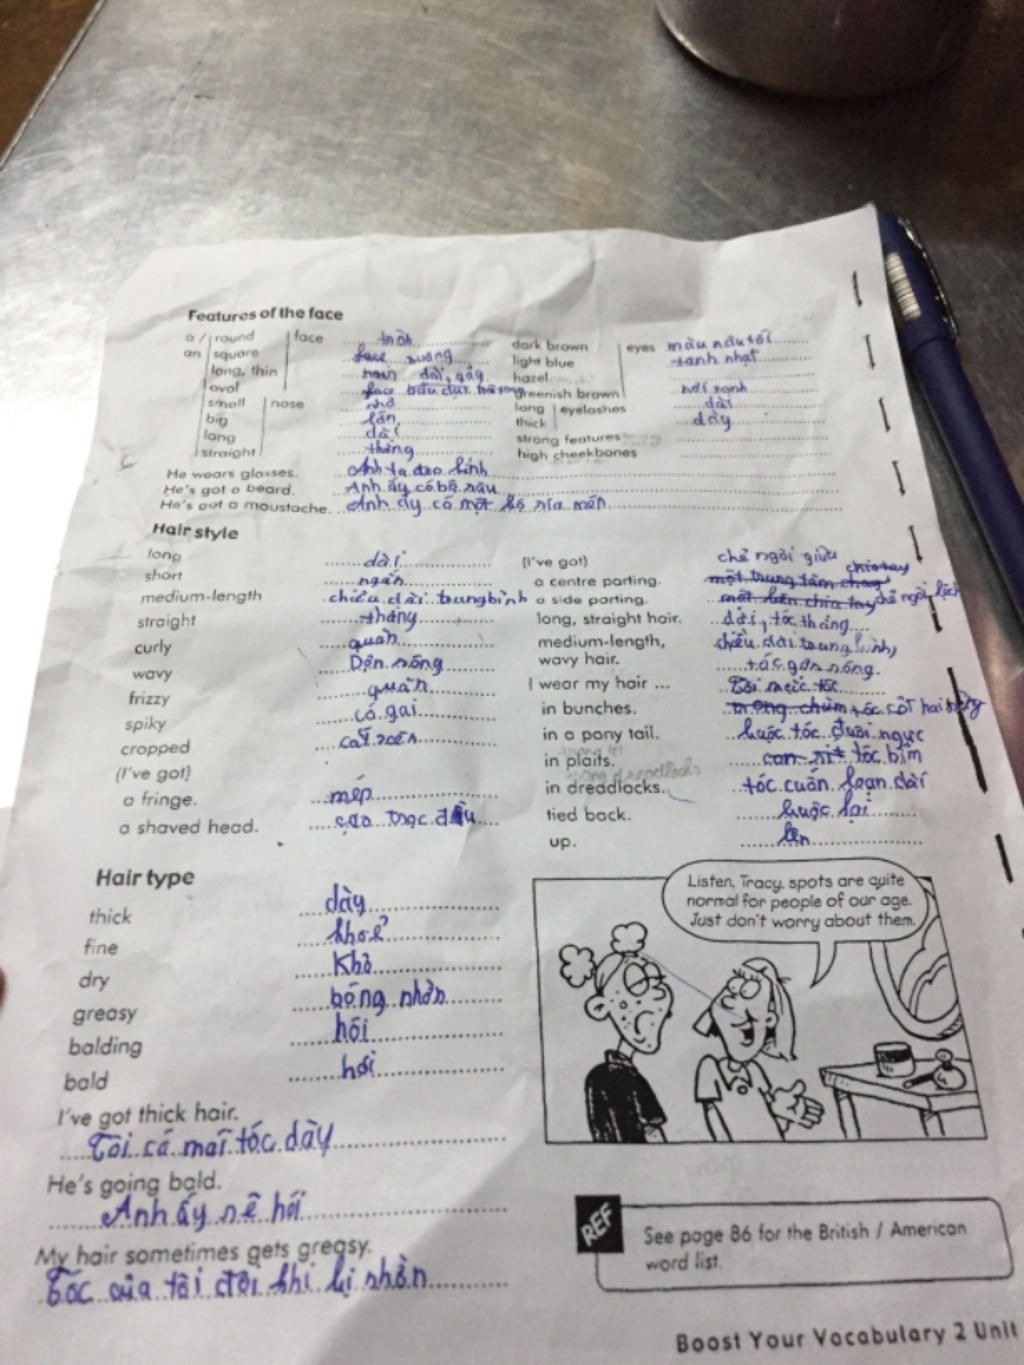 Features of the face
a / round face tròn
an square face vuông
long, thin dài, gầy
oval face bầu dục
small nose nhỏ
big lớn
long dài
straight thẳng
dark brown eyes màu nâu tối
light blue xanh nhạt
hazel
greenish brown
long eyelashes dài
thick dày
strong features
high cheekbones
He wears glasses. Anh ta đeo kính
He's got a beard. Anh ấy có bộ râu
He's got a moustache. Anh ấy có một bộ ria mén
Hair style
long dài
short ngắn
medium-length chiều dài trung bình
straight thẳng
curly quăn
wavy Dợn sóng
frizzy quăn
spiky có gai
cropped cắt xén
(I've got)
a fringe. mép
a shaved head. cạo trọc đầu
(I've got) chẻ ngôi giữa
a centre parting. một trung tâm chia tay
a side parting. một bên chia tay chẻ ngôi lệch
long, straight hair. dài, tóc thẳng
medium-length, chiều dài trung bình,
wavy hair. tóc gợn sóng.
I wear my hair ... Tôi mặc tóc
in bunches. trong chùm tóc cột hai
in a pony tail. buộc tóc đuôi ngực
in plaits. con rít tóc bím
in dreadlocks. tóc cuốn loạn dài
tied back. buộc lại
up. lên
Hair type
thick dày
fine khoẻ
dry Khô
greasy bóng nhờn
balding hói
bald hói
I've got thick hair.
Tôi có mái tóc dày
He's going bald.
Anh ấy sẽ hói
My hair sometimes gets greasy.
Tóc của tôi đôi khi bị nhờn
Listen, Tracy, spots are quite
normal for people of our age.
Just don't worry about them.
REF
See page 86 for the British / American
word list.
Boost Your Vocabulary 2 Unit